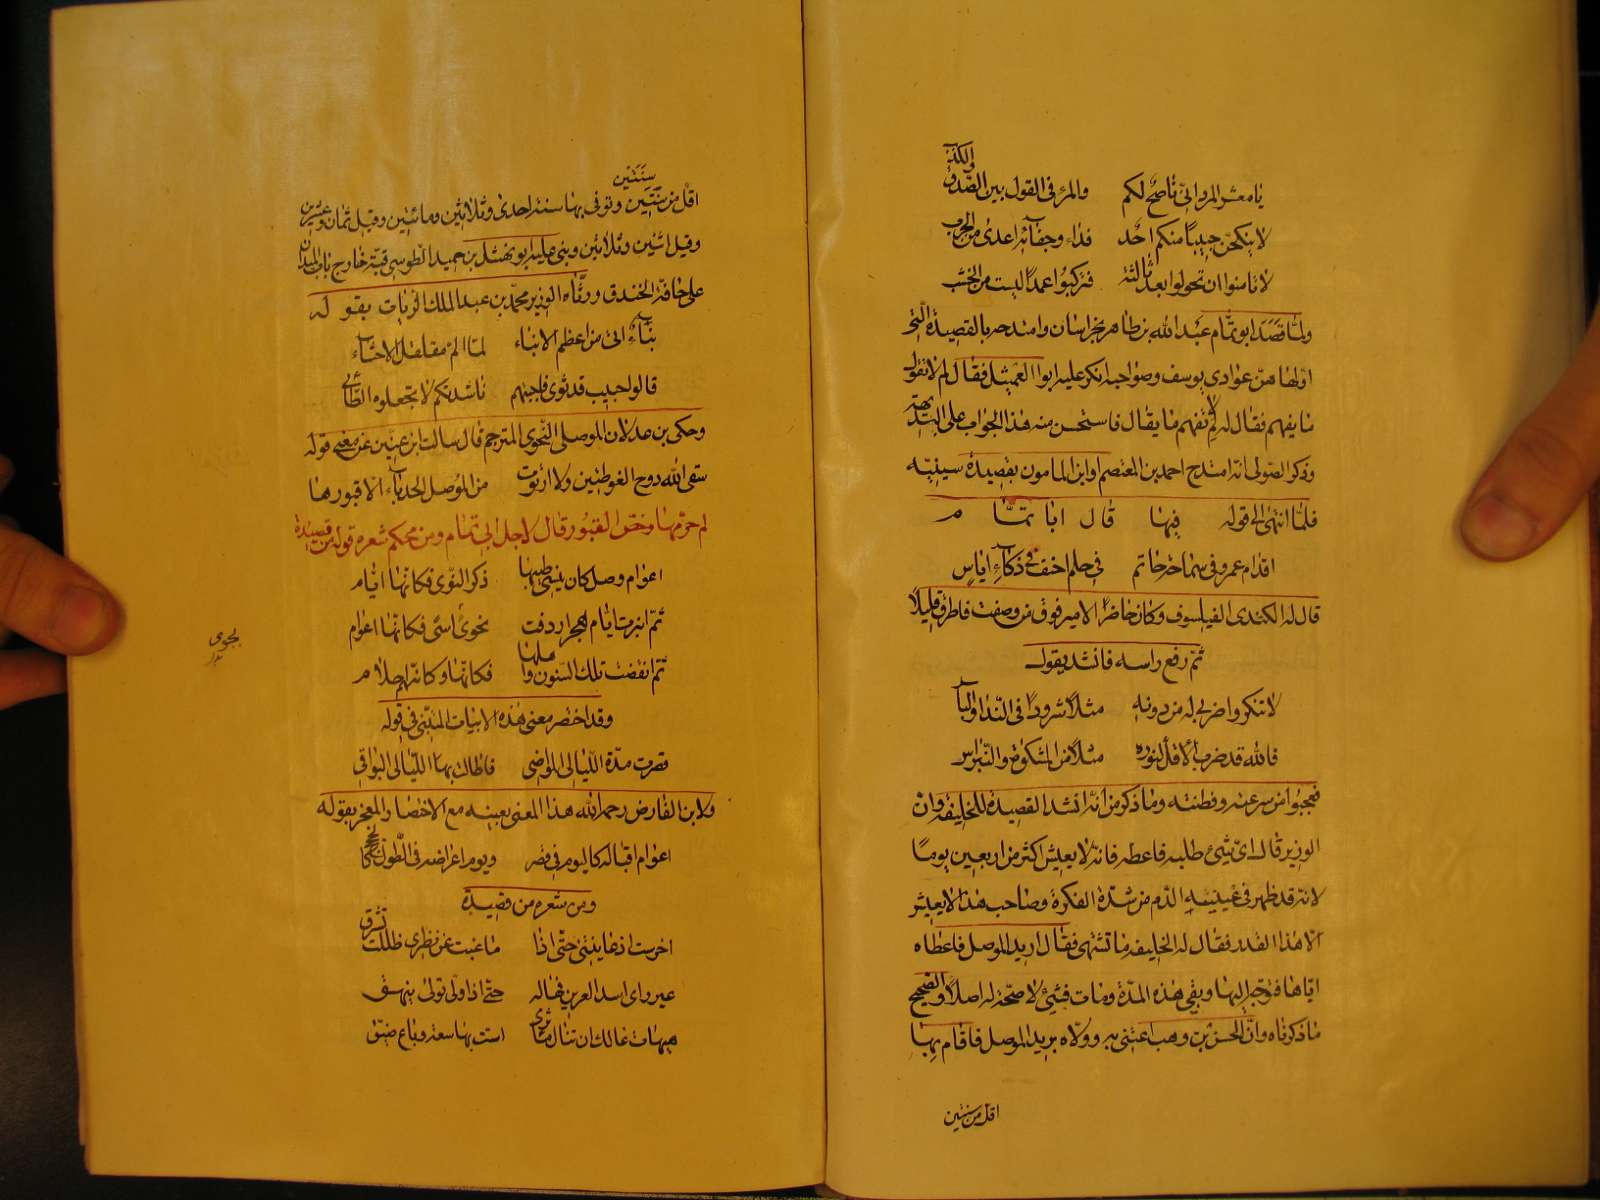 والكذب
يا معشر المرد اني ناصح لكم والمرء في القول بين الصدق
لا ينكحن حبيبا منكم احد فداء وجفائه اعدى من الجرب
لا تامنوا ان تحولوا بعد ثالثة فتركبوا عمدا ليست من الخشب
ولما قصد ابو تمام عبد الله بن طاهر بخراسان وامتدحه بالقصيدة التي
اولها هن عوادي يوسف وصواحبه انكر عليه ابو العميثل فقال لم لا تقول
ما يفهم فقال له لم لا تفهم ما يقال فاستحسن منه هذا الجواب على البديهة
وذكر الصولي انه امتدح احمد بن المعتصم او ابن المامون بقصيدة سينيه
فلما انتهى الى قوله فيها قال ابا تمام
اقدام عمرو في سماحة حاتم في حلم احنف في ذكاء اياس
قال له الكندي الفيلسوف وكان حاضرا الامير فوق من وصفت فاطرق قليلا
ثم رفع راسه فانشد يقول
لا تنكروا ضربي له من دونه مثلا شرودا في الندا والباس
فالله قد ضرب الاقل لنوره مثلا من المشكوة والنبراس
فعجبوا من سرعته وفطنته وما ذكر من انه انشد القصيدة للخليفة وان
الوزير قال اي شيئ طلبه فاعطه فانه لا يعيش اكثر من اربعين يوما
لانه قد ظهر في عينيه الدم من شدة الفكرة وصاحب هذا لا يعيش
الا هذا القدر فقال له الخليفه ما تشتهي فقال اريد الموصل فاعطاه
اياها فتوجه اليها وبقي هذه المدة ومات فشيئ لا صحة له اصلا والصحيح
ما ذكرناه وان الحسن بن وهب اعتنى به وولاه بريد الموصل فاقام بها
اقل من سنتين
سنتين
اقل من سنتين وتوفى بها سنة احدى وثلاثين ومائتين وقيل ثمان وعشرين
وقيل اثنين وثلاثين وبنى عليه ابو نهشل بن حميد الطوسي قبة خارج باب الميدان
على حافة الخندق ورثاه الوزير محمد بن عبد الملك الزيات بقوله
نباء اتى من اعظم الانباء لما الم مقلقل الاحشاء
قالوا حبيب قد ثوى فاجبتهم ناشدتكم لا تجعلوه الطائي
وحكى بن عدلان الموصلي النحوي المترجم قال سالت ابن عنين عن معنى قوله
سقى الله دوح الغوطتين ولا ارتوت من الموصل الحدباء الا قبورها
لم حرمها وخص القبور قال لاجل ابي تمام ومن محكم شعره قوله من قصيدة
اعوام وصل كان ينسي طيبها ذكر النوى فكانها ايام
ثم انبرت ايام هجر اردفت نحوى اسى فكانها اعوام
ثم انقضت تلك السنون واهلها فكانها وكانهم احلام
بجوى
وقد اختصر معنى هذه الابيات المتنبي في قوله
قصرت مدة الليالي المواضى فاطالت بها الليالي البواقي
ولابن الفارض رحمه الله هذا المعنى بعينه مع الاختصار المعجز بقوله
اعوام اقباله كاليوم في قصر ويوم اعراضه في الطول كالحجج
ومن شعره من قصيدة
اخرست اذ عاينتني حتى اذا ما غبت عن نظري ظللت تشرق
عير راى اسد العرين فهاله حتى اذا ولى تولى ينهق
هيهات غالك ان تنال ماثري است بها سعة وباع ضيق